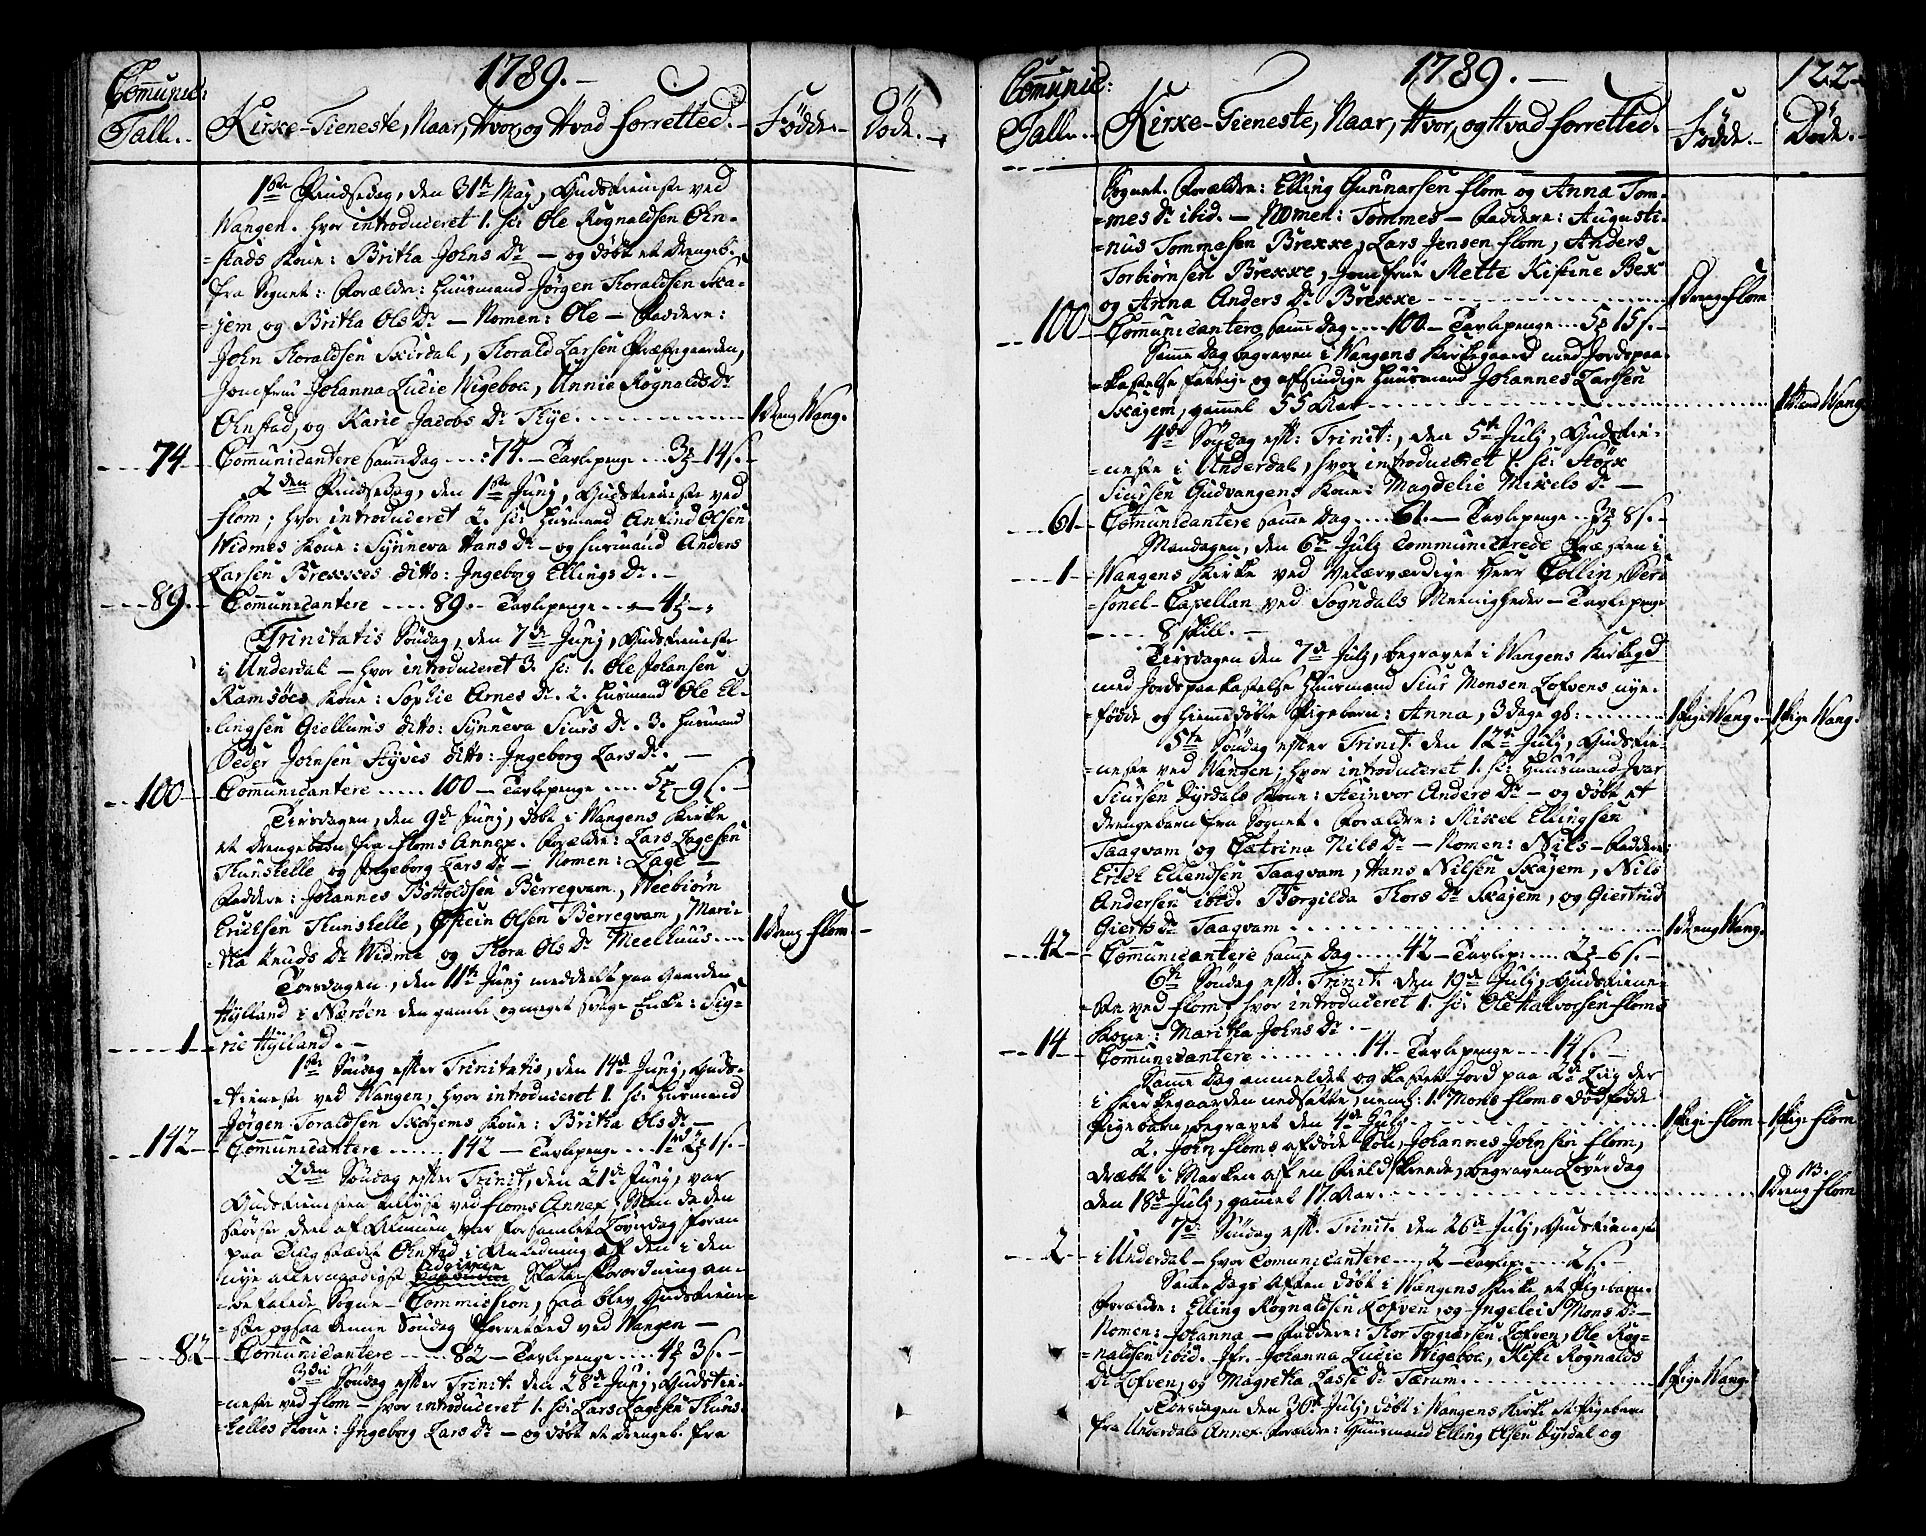 1789.-
Comunic:
Tall.. Kirke-Tieneste, Naar, Hvor, og Hvad forretted.- Födde.- Döde.-
1ste Pindsedag, den 31te Maj, Gudstieneste ved
Wangen. hvor introduceret 1. sc: Ole Rognaldsen Ohn-
=stads Kone: Britha Johns Dr — og döbt et Drengeb:
fra Sognet: Forældre: Huusmand Jörgen Thoraldsen Ska-
=jem og Britha Ols Dr — Nomen: Ole — Faddere:
John Thoraldsen Skirdal, Thorald Larsen Præstegaarden,
Jomfrue Johanna Lucie Wigeboe, Unnie Rognalds Dr
Ohnstad, og Karie Jacobs Dr Stye. 1 Dreng Wang.
74 Communicantere samme Dag ....: 74. — Tavlepenge ... 3 14 s. —
2den Pindsedag, den 1ste Junj, Gudstieneste ved
flom; hvor introduceret 2. sc: Husmand Anfind Olsen
Widmes Kone: Synneva Hans Dr — og husmand Anders
Larsen Brekkes ditto: Ingeborg Ellings Dr. —
89. Comunicantere .... 89. — Tavlepenge .. 4
Trinitatis Söndag, den 7de Junj, Gudstieneste
i Underdal — hvor introduceret 3 sc: 1. Ole Johansen
Ramsöes Kone: Sophie Arnes Dr. 2. husmand Ole El-
=lingsen Giellums ditto: Synneva Siurs Dr. 3. husmand
Peder Johnsen Styves ditto: Ingeborg Lars Dr. —
100 Communicantere ...... 100 — Tavlepenge .... 5 9 s. —
Tirsdagen, den 9de Junj, döbt i Wangens Kirke
et Drengebarn fra Floms Annex. Forældre: Lars Lagesen
Thunshelle og Ingeborg Lars Dr — Nomen: Lage —
Faddere: Johannes Bottoldsen Berreqvam, Weebiörn
Ericksen Thunshelle, Östein Olsen Berreqvam, Mari-
=tha Knuds Dr Widme og Thora Ols Dr Meelhuus ... 1 Dreng flom. —
Torsdagen, den 11te Junj meddeelt paa Gaarden
Hylland i Næröen den gamle og meget svage Enke: Sig-
1 =rie Hylland. —
1ste Söndag efter Trinitatis, den 14de Junj, Guds-
=tieneste ved Wangen, hvor introduceret 1. sc: husmand
Jörgen Toraldsen Skajems Kone: Britha Ols Dr —
142 Communicantere ...... 142 — Tavlepenge ... 1 2 1 s. —
2den Söndag efter Trinit, den 21de Junj, var
Gudstienesten tillyst ved floms Annex; Men da den
störste deel af Almuen var forsamlet Löverdag foran
paa Tingstædet Ohnstad i Anledning af den i den
nye allernaadigst udgivne Skatte Forordning an-
=befalede Sogne-Commission, saa blev Gudstiene-
=ste ogsaa denne Söndag forretted ved Wangen —
82 Communicantere ..... 82 — Tavlepenge .... 4 3 s. —
3die Söndag efter Trinit. den 28de Junj, Gudstie-
=neste ved flom — hvor introduceret 1. sc: Lars Lagesen Thuns-
=helles Kone: Ingeborg Lars Dr — og döbt et Drengeb. fra
1789.— 122
Comunic:
Tall.. Kirke-Tieneste, Naar, Hvor, og Hvad forretted. Födde.- Döde.-
Sognet. Forældre: Elling Gunnarsen flom og Anna Tom-
=mes Dr ibid. — Nomen: Tommes — Faddere: Augusti-
=nus Tommesen Brekke, Lars Jensen flom, Anders
Torbiörnsen Brekke, Jomfrue Mette Kistine Bex
og Anna Anders Dr Brekke 1 Dreng flom
100 Comunicantere samme Dag .... 100 — Tavlepenge ... 5 15 s. —
Samme Dag begraven i Wangens Kirkegaard med Jordspaa-
=kastelse fattige og afsindige Huusmand Johannes Larsen
Skajem, gammel 55 Aar 1 Mand Wang
4de Söndag eft: Trinit:, den 5te Julj, Gudstie-
=neste i Underdal, hvor introduceret 1. sc: Störk
Siursen Gudvangens Kone: Magdelie Mikels Dr —
61 Comunicantere samme Dag .... 61. — Tavlepenge .. 3 8 s. —
Mandagen, den 6te Julj communicerede Præsten i
1 Wangens Kirke ved Velærværdige Herr Collin, Per-
=sonel-Capellan ved Sogndals Menigheder — Tavlepenge
..... 8 skill. —
Tirsdagen den 7de Julj, begravet i Wangens Kirkegd
med Jordspaakastelse Huusmand Siur Monsen Lofvens nye-
=födde og hiemmedöbte Pigebarn: Anna, 3 dage gl: 1 Pige Wang. 1 Pige Wang.
5te Söndag efter Trinit. den 12te Julj, Gudstie-
=neste ved Wangen; hvor introduceret 1. sc: Huusmand Ivar
Siursen Dyrdals Kone: Steinvor Anders Dr — og döbt et
Drengebarn fra Sognet. Forældre: Mikel Ellingsen
Taagvam og Catrina Nils Dr — Nomen: Nils — Faddere:
Erick Ellendsen Taagvam, Hans Nilsen Skajem, Nils
Andersen ibid. Borgilda Thors Dr Skajem, og Giertrud
Gierts Dr Taagvam 1 Dreng Wang.
42 Communicantere samme Dag ..... 42 — Tavlep: .... 2 6 s. —
6te Söndag eft. Trinit. den 19de Julj, Gudstiene-
=ste ved flom, hvor introduceret 1. sc: Ole Halvorsen floms
Kone: Maritha Johns Dr. —
14 Comunicantere ........ 14. — Tavlepenge ... 14 s. —
Samme Dag anmeldet og kastet Jord paa 2de Liig der
i Kirkegaarden nedsatte, neml: 1. Mons floms dödfödde
Pigebarn, begravet den 4de Julj 1 Pige flom 1 Pige flom
2. John floms afdöde Sön, Johannes Johnsen flom,
dræbt i Marken af en Field skreede, begraven Löverdag
den 18de Julj, gammel 17. Aar 1 Dreng flom
7de Söndag eft. Trinit. den 26de Julj, Gudstieneste
2 i Underdal — hvor Comunicantere ... 2 — Tavlep: .... 2 s. —
Samme Dags Aften döbt i Wangens Kirke et Pigebarn.
Forældre: Elling Rognaldsen Lofven, og Ingelei S Mons Dr —
Nomen: Johanna — Faddere: Thor Torgiersen Lofven, Ole Rog-
=naldsen ibid. Jfr. Johanna Lucie Wigeboe, Kisti Rognalds
Dr Lofven, og Magretha Lasse Dr Tærum 1 Pige Wang.
Torsdagen den 30te Julj, döbt i Wangens Kirke et Pigebarn
fra Underdals Annex. Forældre: Huusmand Elling Olsen Dyrdal og